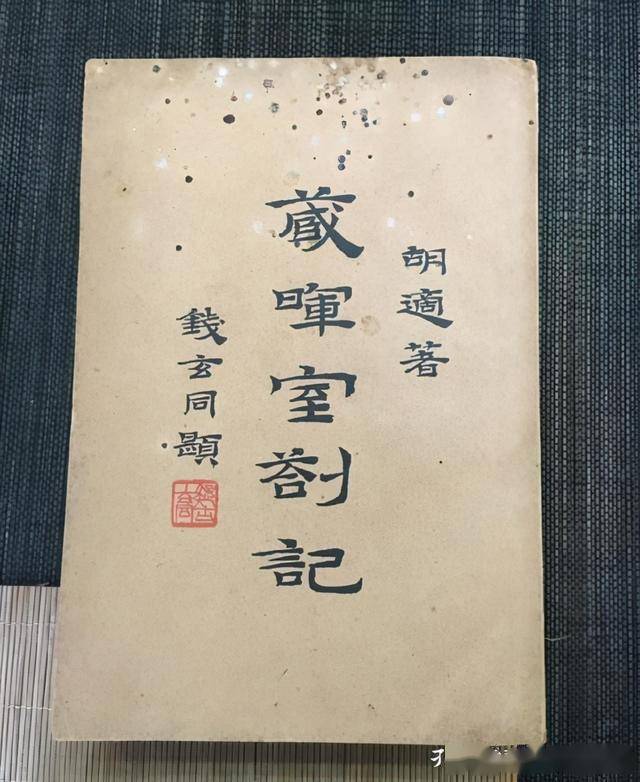 胡適著
藏暉室剳記
錢玄同題